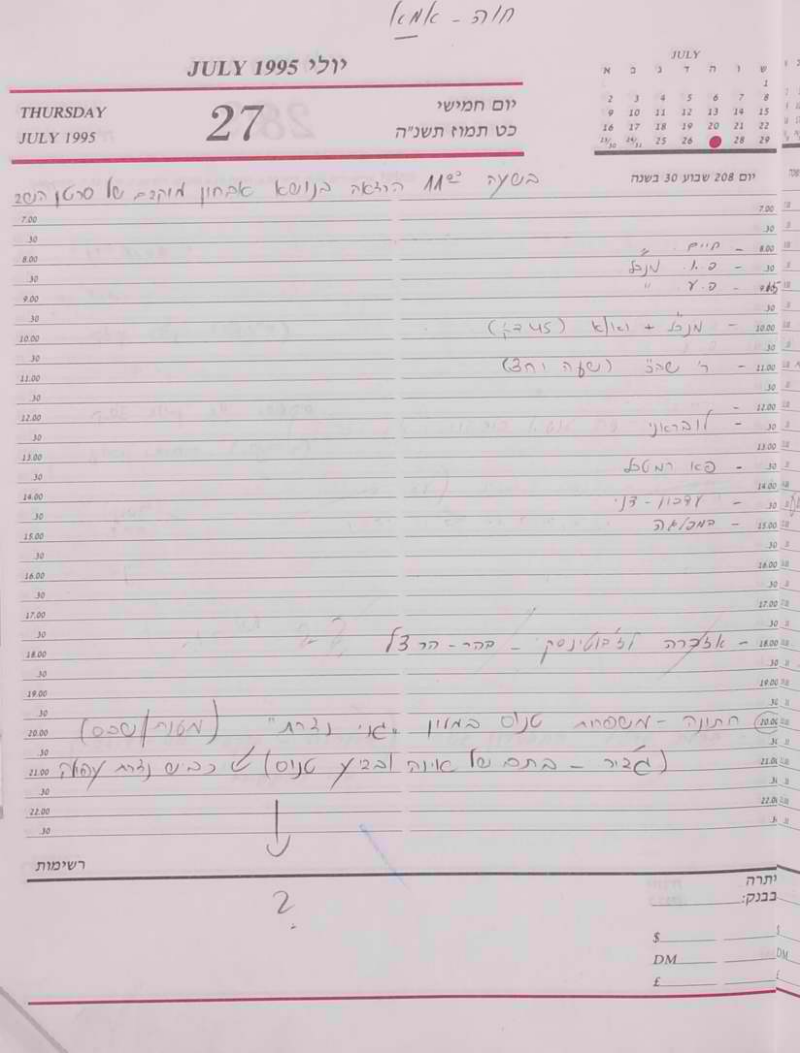 חוה - אמא
JULY 1995 יולי
THURSDAY
JULY 1995
27
יום חמישי
כט תמוז תשנ"ה
JULY
א ב ג ד ה ו ש
1
2 3 4 5 6 7 8
9 10 11 12 13 14 15
16 17 18 19 20 21 22
23/30 24/31 25 26 28 29
יום 208 שבוע 30 בשנה
בשעה 11:00 הרצאה בנושא אבחון מוקדם של סרטן השד
7.00
30
8.00 - חיים "
30 - פ.א מנכל
9.00 - פ.ע "
30
10.00 - מנכ"ל + (45 דק')
30
11.00 - ר' שהב (שעה וחצי)
30
12.00 -
30 - לובראני
13.00
30 - פא רמטכל
14.00
30 - עדכון - דני
15.00 - במכלגה
30
16.00
30
17.00
30
18.00 - אזכרה לז'בוטינסקי - בהר - הרצל
30
19.00
30
20.00 חתונה - משפחת טנוס במלון "גני נצרת" (מטנת/שכס)
30
21.00 (גביר - בתם של אינה וביע טנוס) כביש נצרת עפולה
30
22.00
30
?
רשימות
יתרה
בבנק:
$
DM
£